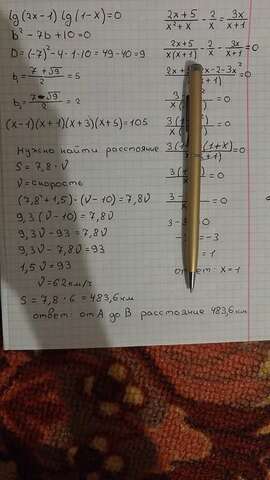 lg(2x-1) lg(1-x)=0
b²-7b+10=0
D=(-7)²-4·1·10=49-40=9
b₁=(7+√9)/2=5
b₂=(7-√9)/2=2
(x-1)(x+1)(x+3)(x+5)=105
Нужно найти расстояние
S=7,8·V
V=скорость
(7,8+1,5)·(V-10)=7,8V
9,3(V-10)=7,8V
9,3V-93=7,8V
9,3V-7,8V=93
1,5V=93
V=62км/ч
S=7,8·6=483,6км
ответ: от А до В расстояние 483,6км
(2x+5)/(x²+x) - 2/x = 3x/(x+1)
(2x+5)/(x(x+1)) - 2/x - 3x/(x+1) = 0
=0
=0
=0
=0
=-3
=1
ответ: x=1